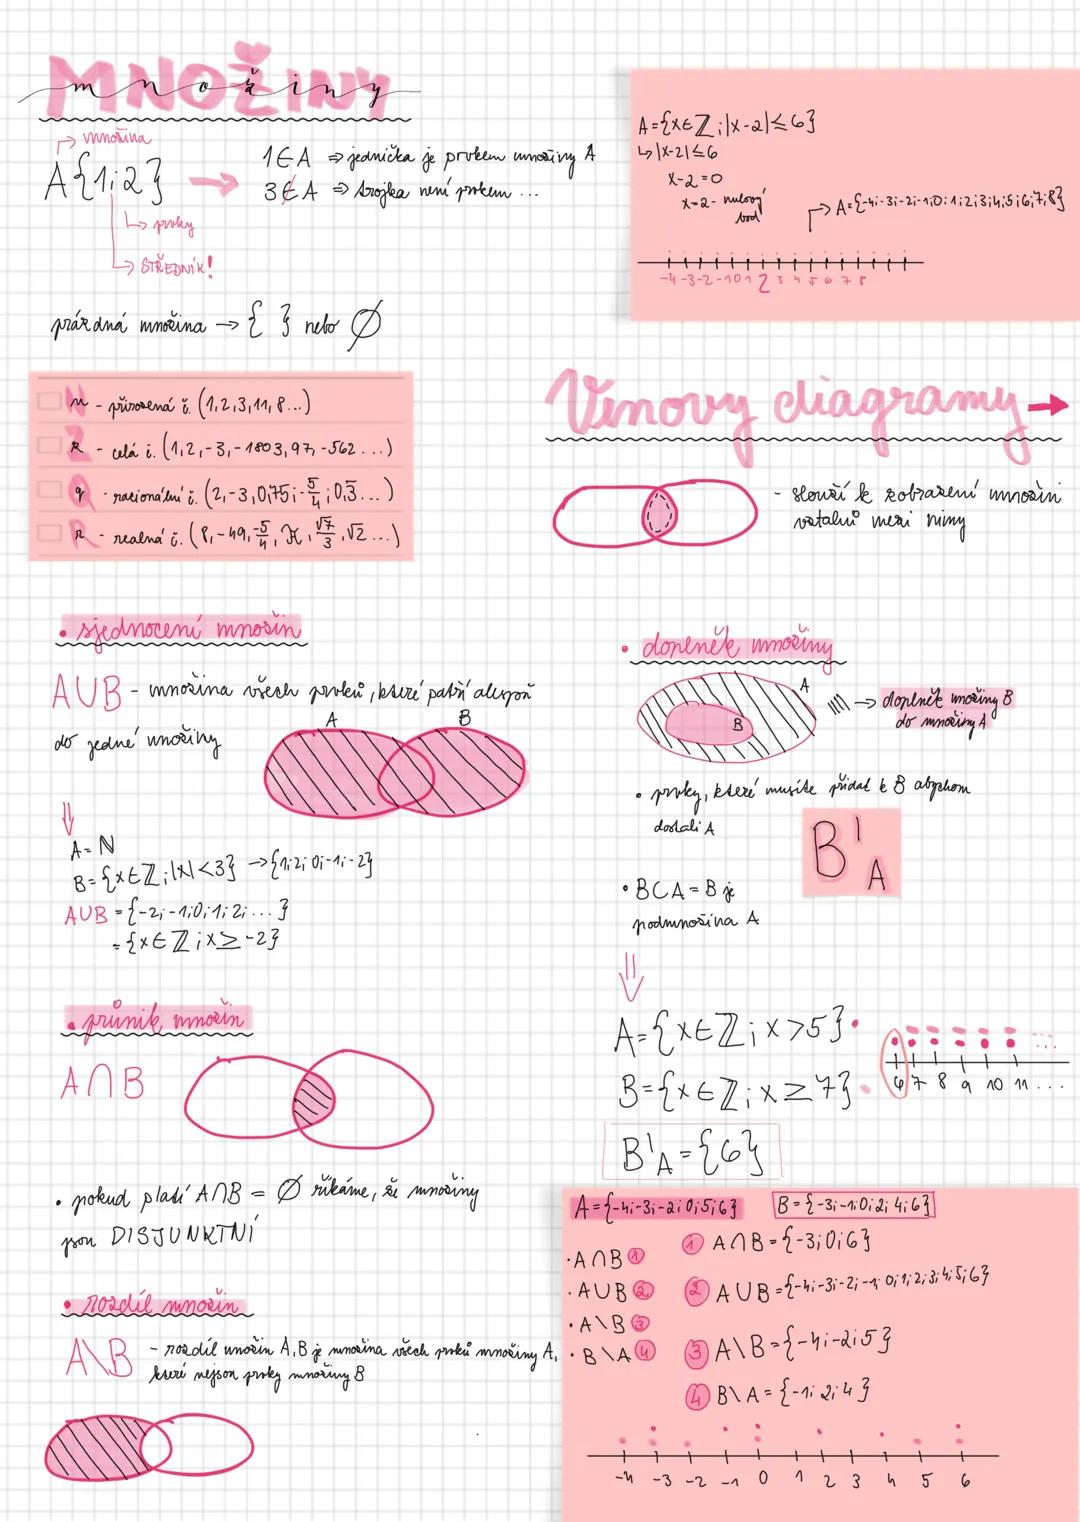 MNOŽINY
množiny
množina
A{1;2}
prvky
STŘEDNÍK!
1∈A ⇒ jednička je prvkem množiny A
3∉A ⇒ trojka není prvkem ...
prázdná množina → { } nebo ∅
N n - přirozená č. (1,2,3,11,8...)
Z z - celá č. (1,2,-3,-1803,97,-562...)
Q q - racionální č. (2,-3,0,75;-5/4;0,3̅...)
R r - realná č. (8,-49,-5/4,π,√7/3,√2...)
• sjednocení množin
A∪B - množina všech prvků, které patří alespoň
do jedné množiny
A B
⇓
A=ℕ
B={x∈ℤ;|x|<3} →{1;2;0;-1;-2}
A∪B={-2;-1;0;1;2;...}
={x∈ℤ;x≥-2}
• průnik množin
A∩B
• pokud platí A∩B = ∅ říkáme, že množiny
jsou DISJUNKTNÍ
• rozdíl množin
A\B - rozdíl množin A,B je množina všech prvků množiny A,
které nejsou prvky množiny B
A={x∈ℤ;|x-2|≤6}
↳|x-2|≤6
x-2=0
x=2- nulový
bod
→A={-4;-3;-2;-1;0;1;2;3;4;5;6;7;8}
-4 -3 -2 -1 0 1 2 3 4 5 6 7 8
Vénovy diagramy →
- slouží k zobrazení množin
vztahů mezi nimy
• doplněk množiny
A
B
→ doplněk množiny B
do množiny A
• prvky, které musíte přidat k B abychom
dostali A
B'A
• B⊂A = B je
podmnožina A
⇓
A={x∈ℤ;x>5}
B={x∈ℤ;x≥7}
6 7 8 9 10 11 ...
B'A={6}
A={-4;-3;-2;0;5;6} B={-3;-1;0;2;4;6}
• A∩B 1
• A∪B 2
• A\B 3
• B\A 4
1 A∩B={-3;0;6}
2 A∪B={-4;-3;-2;-1;0;1;2;3;4;5;6}
3 A\B={-4;-2;5}
4 B\A={-1;2;4}
-4 -3 -2 -1 0 1 2 3 4 5 6